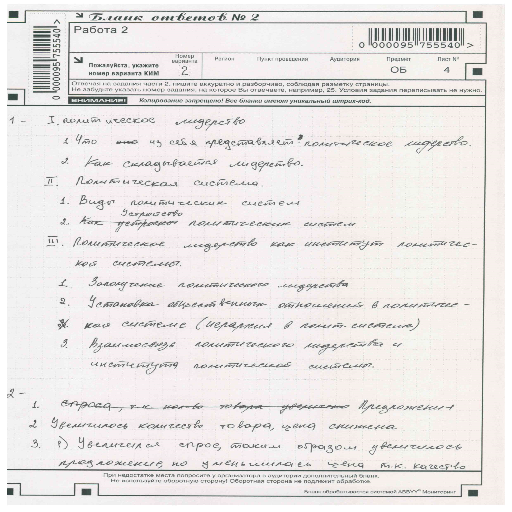 Бланк ответов № 2
Работа 2
0 000095 755540 >
0 000095 755540 >
Пожалуйста, укажите номер варианта КИМ
Номер варианта
2
Регион
Пункт проведения
Аудитория
Предмет
ОБ
Лист №
4
Отвечая на задания части 2, пишите аккуратно и разборчиво, соблюдая разметку страницы.
Не забудьте указать номер задания, на которое Вы отвечаете, например, 25. Условия задания переписывать не нужно.
ВНИМАНИЕ! Копирование запрещено! Все бланки имеют уникальный штрих-код.
1 - I. политическое лидерство
1. Что из себя представляет политическое лидерство.
2. Как складывается лидерство.
II. Политическая система
1. Виды политических систем
Устройство
2. Как устроены политических систем
III. Политическое лидерство как институт политичес-
кой системы.
1. Заполучение политического лидерства
2. Установка общественных отношений в политичес-
кая системе (иерархия в полит. система)
3. Взаимосвязь политического лидерства и
института политической системы.
2 -
1. спроса, т.к. кол-во товара увеличено Предложения
2 Увеличилось количество товара, цена снижена
3. Увеличился спрос, таким образом увеличилось
предложение, но уменьшилась цена т.к. качество
При недостатке места попросите у организатора в аудитории дополнительный бланк.
Не использовать оборотную сторону! Оборотная сторона не подлежит обработке.
Бланк обрабатывается системой ABBYY Мониторинг